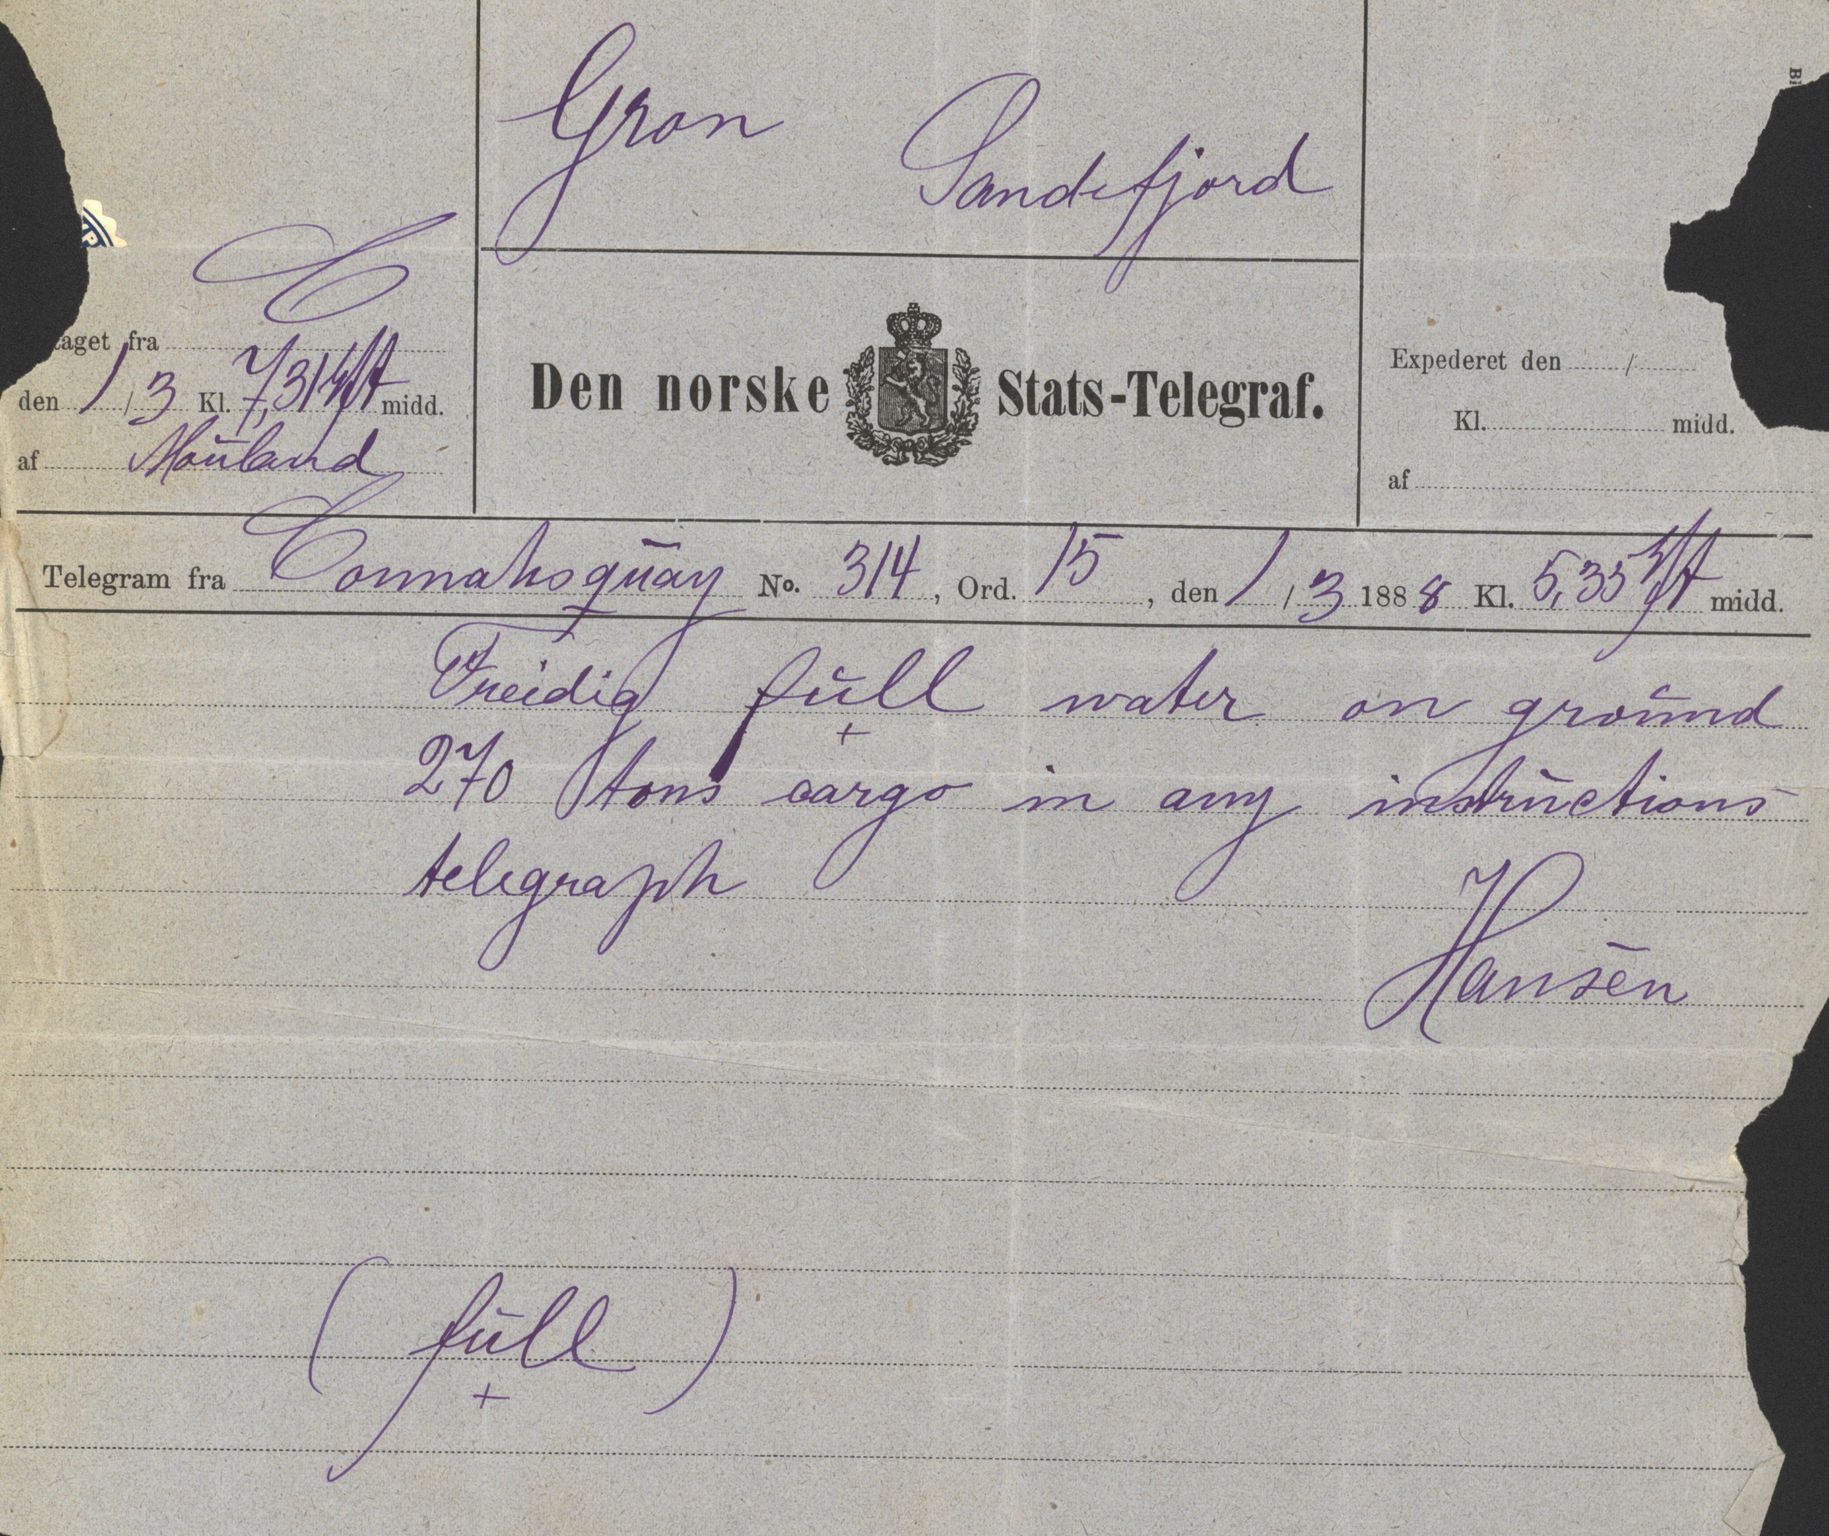 Gron Sandefjord
C
taget fra
den 1/3 Kl. 7,31 midd.
af Mouland
Den norske Stats-Telegraf.
Expederet den /
Kl. midd.
af
Telegram fra Connahsquay No. 314, Ord. 15, den 1/3 1888 Kl. 5,35 midd.
Freidig full water on ground
270 tons cargo in any instructions
telegraph
Hansen
(full)
+